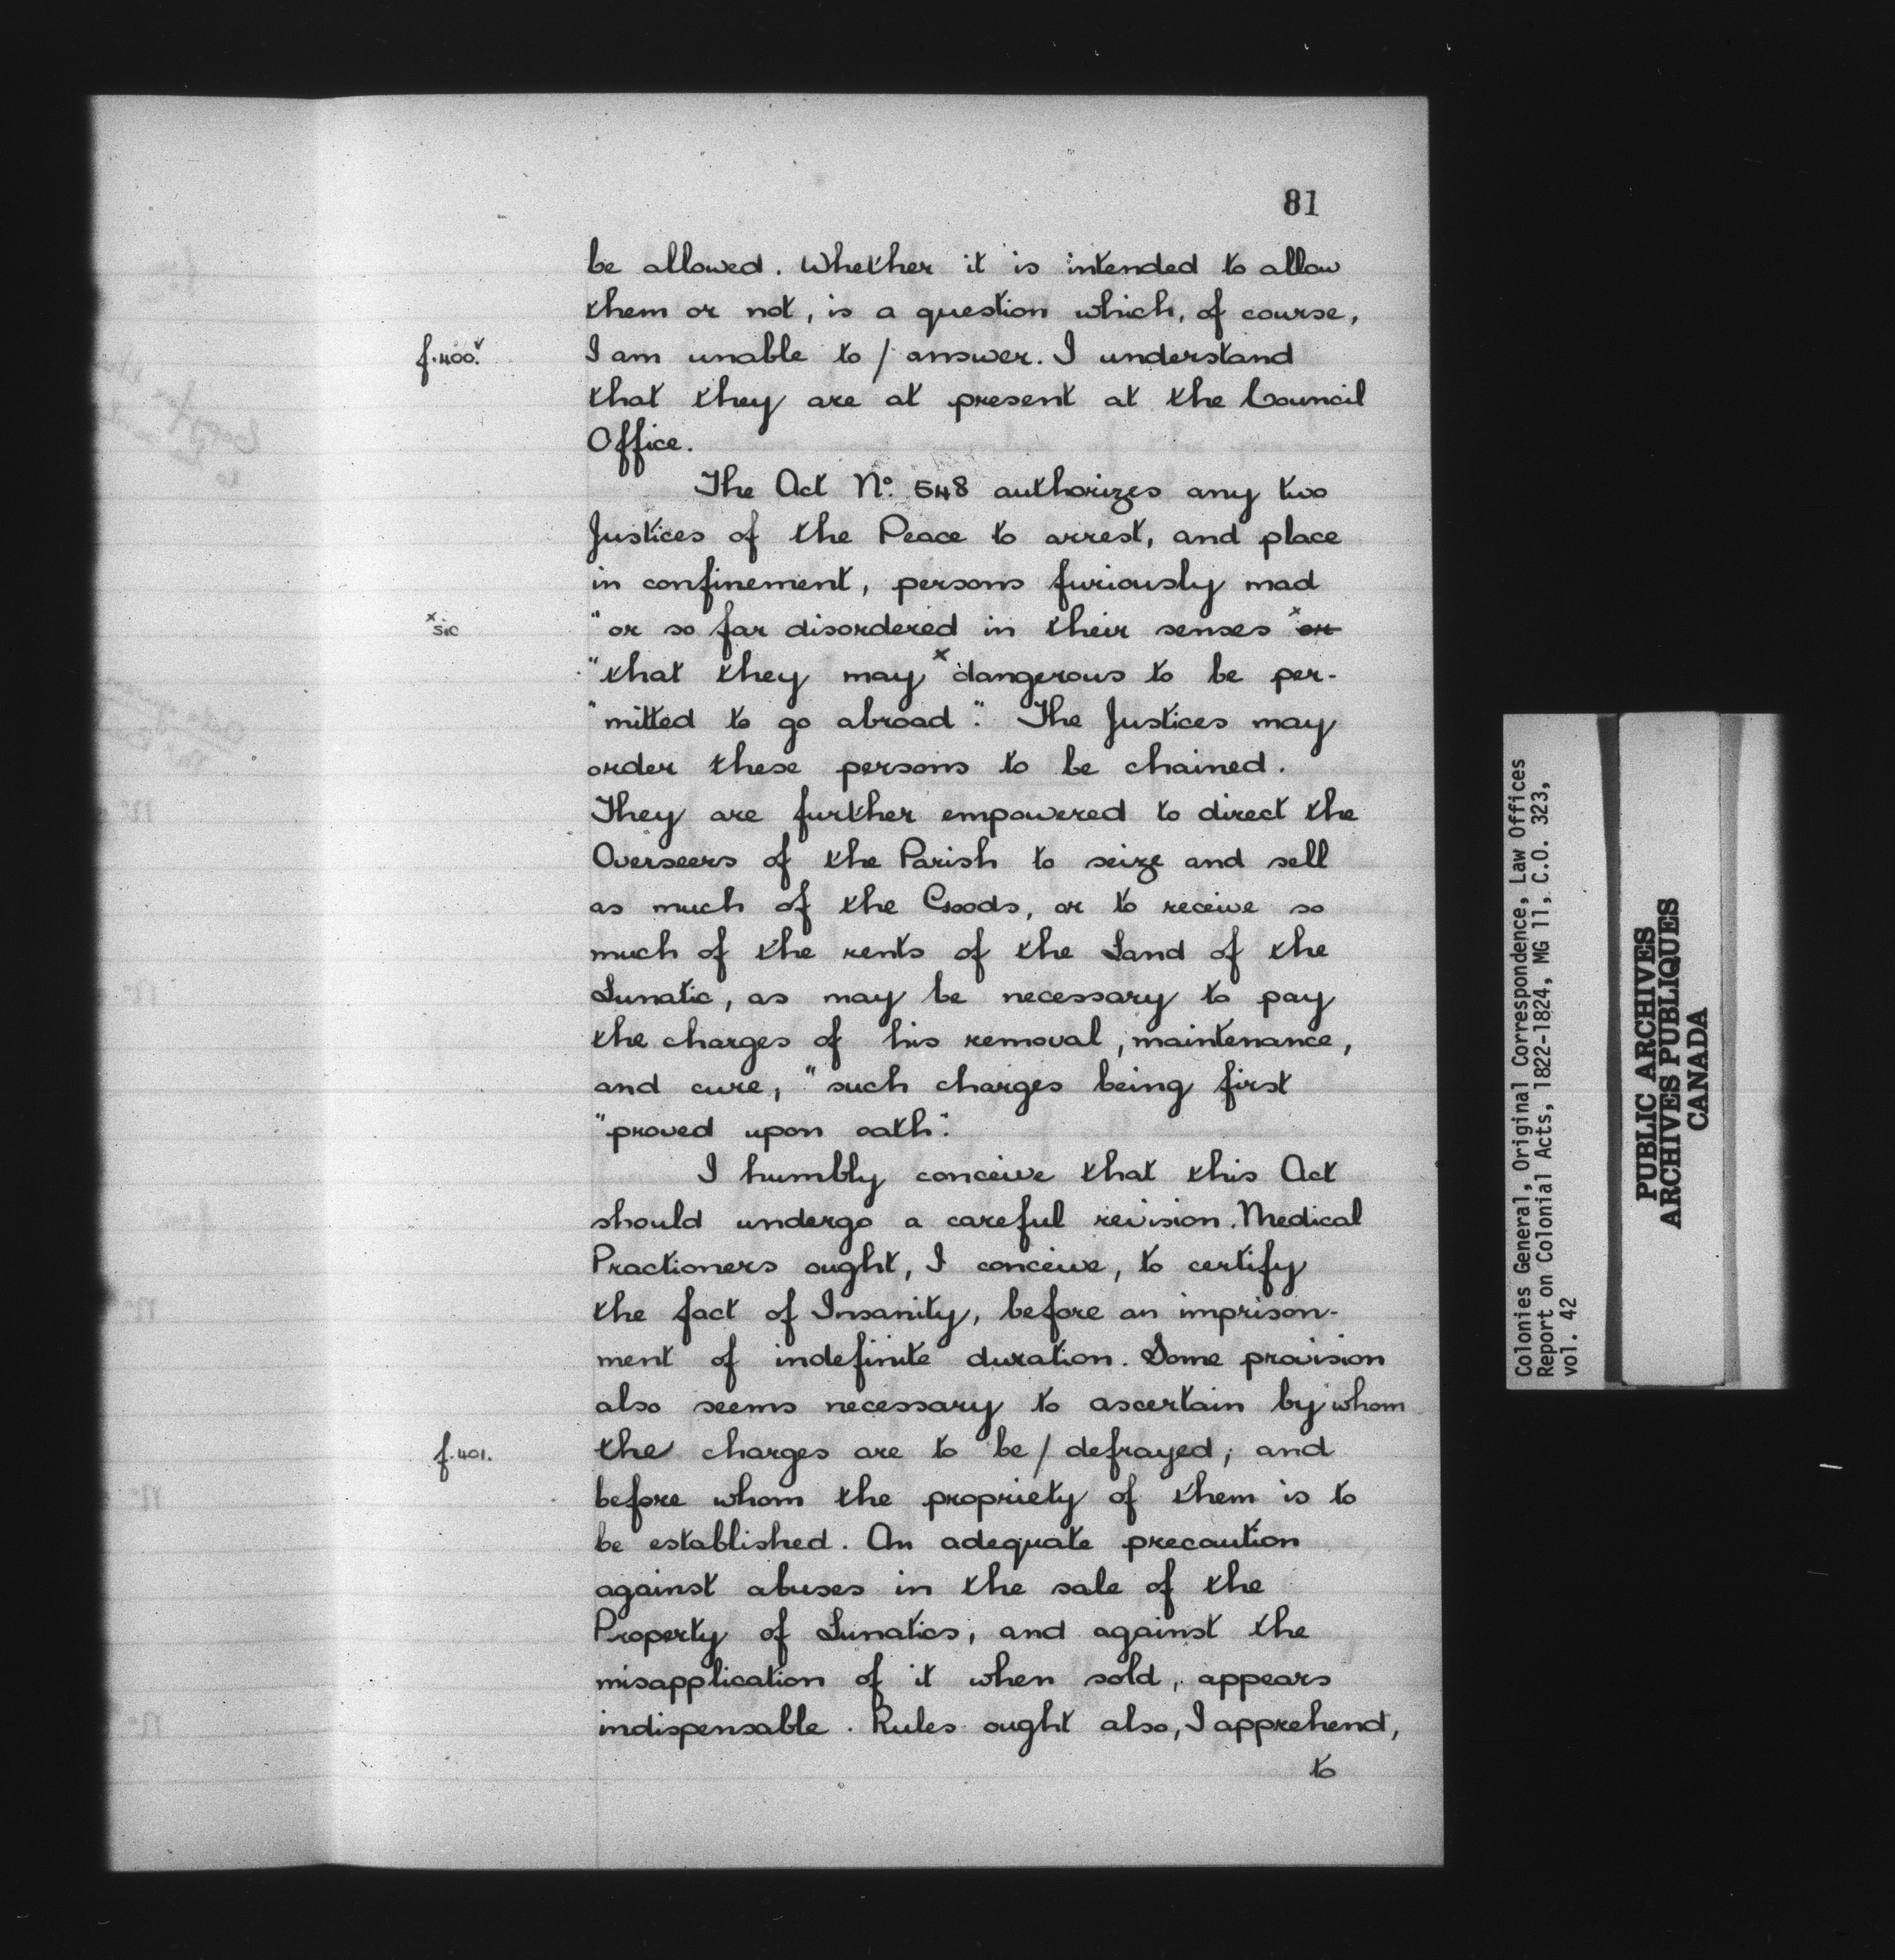 81
be allowed. Whether it is intended to allow
them or not, is a question which, of course,
f.400.v I am unable to / answer. I understand
that they are at present at the Council
Office.
The Act No. 548 authorizes any two
Justices of the Peace to arrest, and place
in confinement, persons furiously mad
x sic "or so far disordered in their senses x or
"that they may x dangerous to be per-
"mitted to go abroad". The Justices may
order these persons to be chained.
They are further empowered to direct the
Overseers of the Parish to seize and sell
as much of the Goods, or to receive so
much of the rents of the Land of the
Lunatic, as may be necessary to pay
the charges of his removal, maintenance,
and cure, "such charges being first
"proved upon oath".
I humbly conceive that this Act
should undergo a careful revision. Medical
Practioners ought, I conceive, to certify
the fact of Insanity, before an imprison-
ment of indefinite duration. Some provision
also seems necessary to ascertain by whom
f.401. the charges are to be / defrayed; and
before whom the propriety of them is to
be established. An adequate precaution
against abuses in the sale of the
Property of Lunatics, and against the
misapplication of it when sold, appears
indispensable. Rules ought also, I apprehend,
to
Colonies General, Original Correspondence, Law Offices
Report on Colonial Acts, 1822-1824, MG 11, C.O. 323,
vol. 42
PUBLIC ARCHIVES
ARCHIVES PUBLIQUES
CANADA